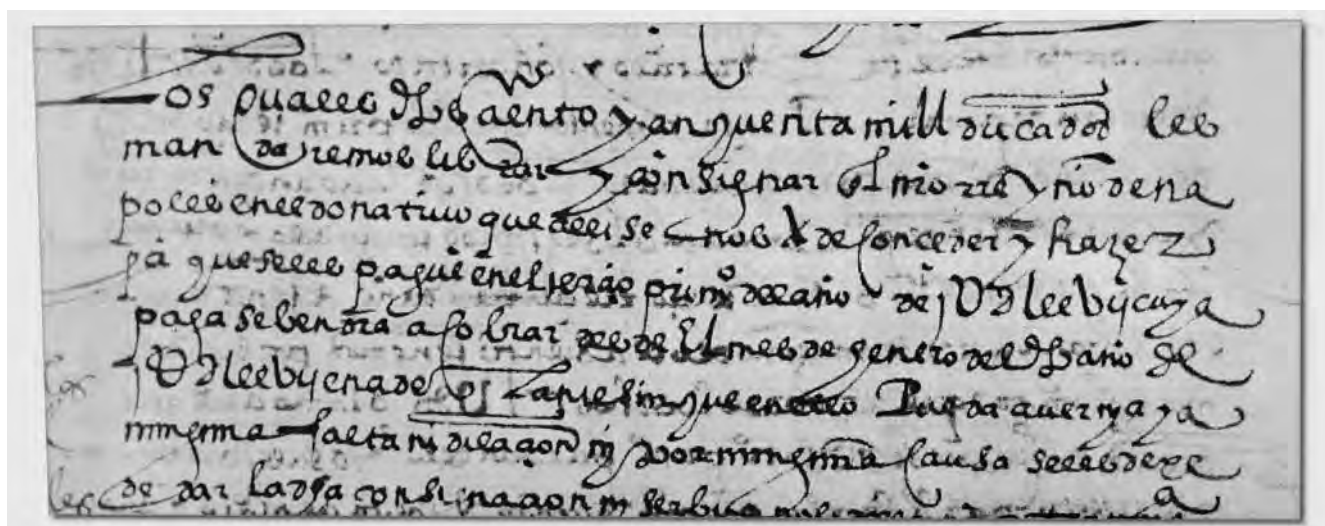 os quales dhos ciento y cinquenta mill ducados les
mandaremos librar y consignar en nro rreyno de na
poles en el donatiuo que alli se nos a de conceder y hazer
pa que se les pague en el terçio primo del año de jUDlxxbij cuya
paga se bendra a cobrar desde el mes de henero del dho año de
jUDlxxbij en adelante sin que en ello pueda auer ny aya
ninguna falta ni dilacion ni por ninguna causa se les dexe
de dar la dha consinacion ni